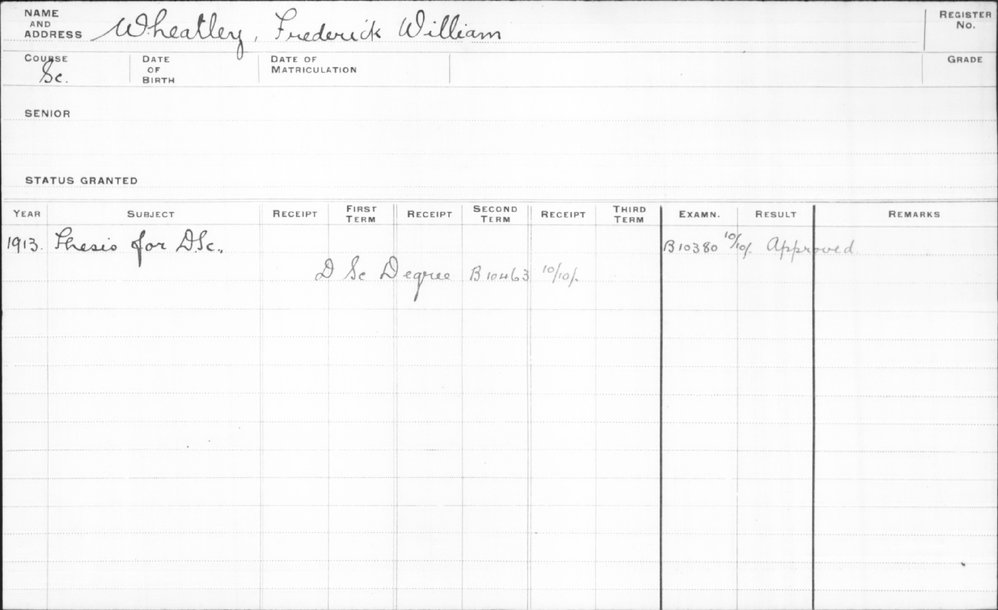 NAME AND ADDRESS Wheatley, Frederick William REGISTER No.
COURSE Sc. DATE OF BIRTH DATE OF MATRICULATION GRADE
SENIOR
STATUS GRANTED
YEAR SUBJECT RECEIPT FIRST TERM RECEIPT SECOND TERM RECEIPT THIRD TERM EXAMN. RESULT REMARKS
1913. Thesis for D.Sc., B10380 10/10/. Approved
D Sc Degree B10463 10/10/.